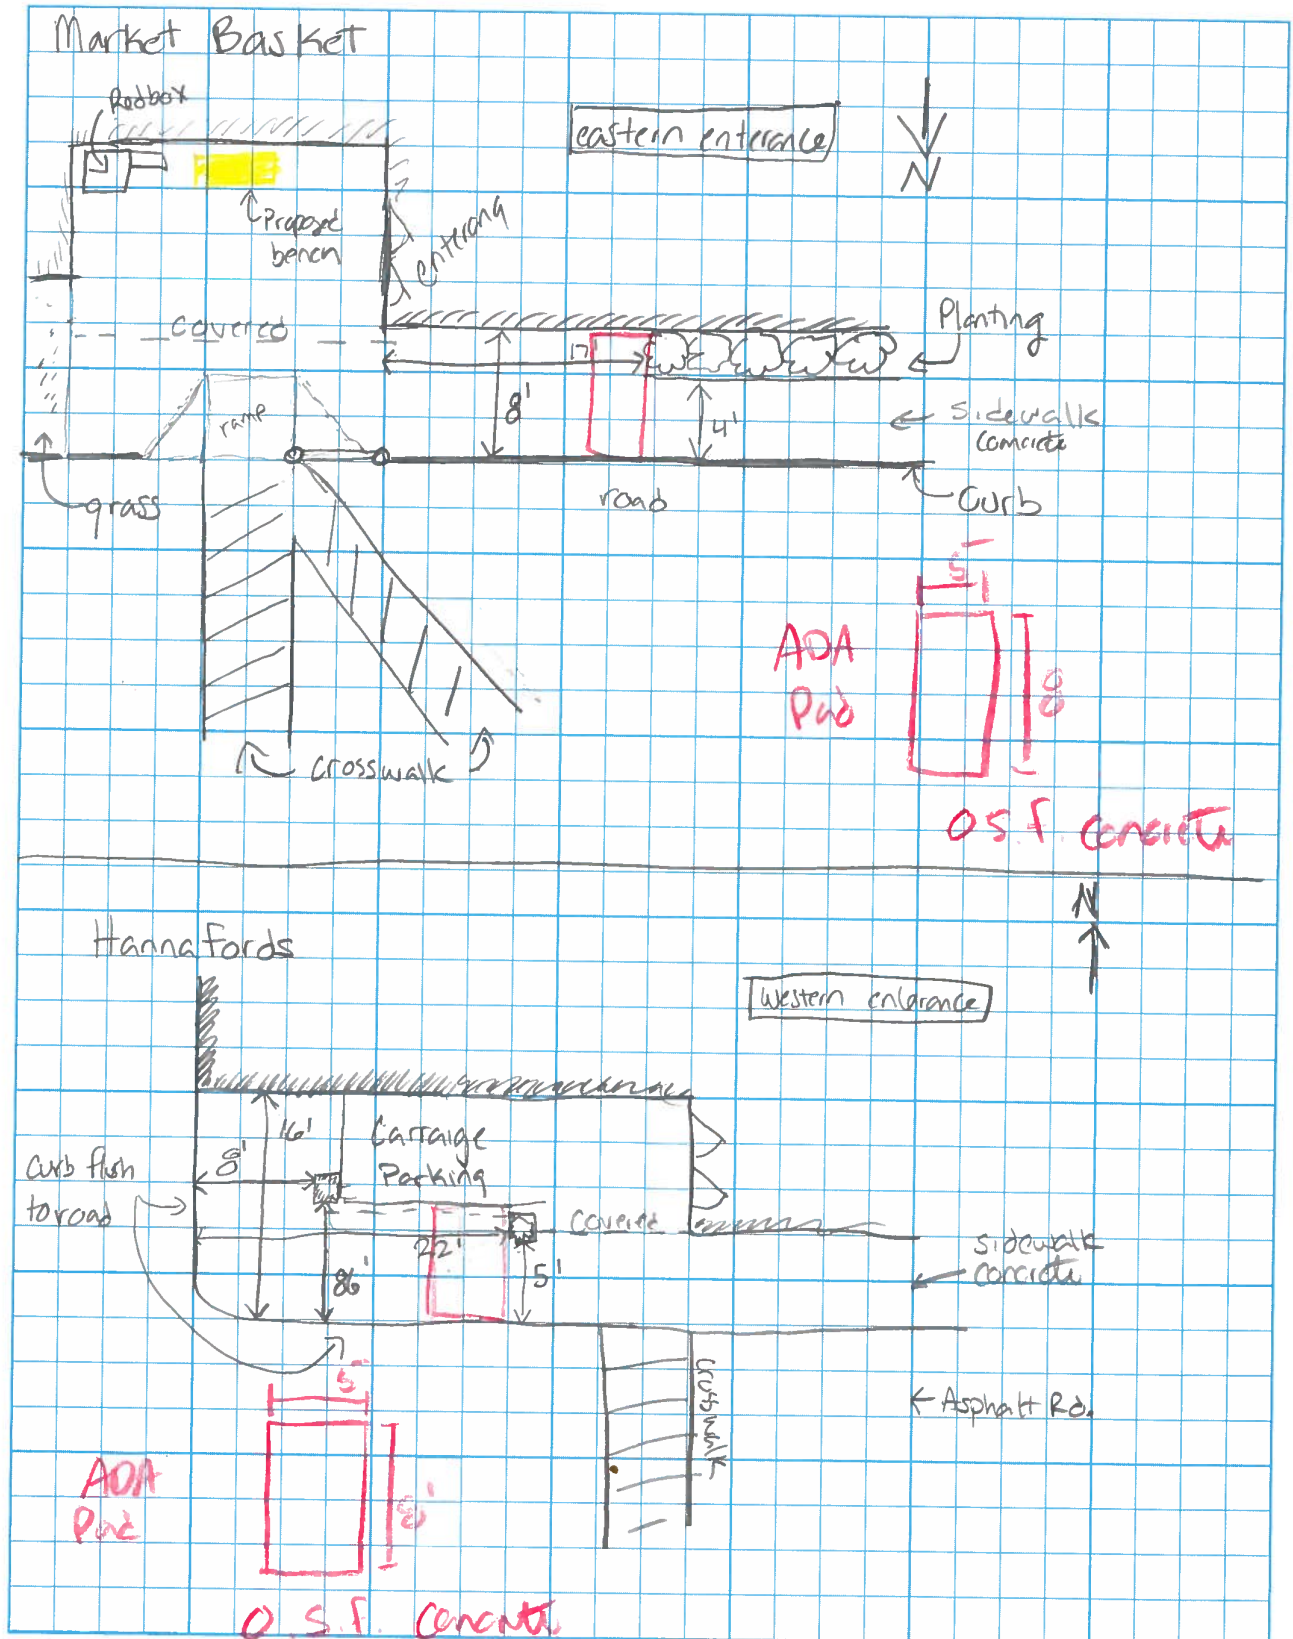 Market Basket
Redbox
eastern enterance
N
Proposed
bench
covered
Planting
17'
8'
4'
ramp
sidewalk
concrete
grass
road
curb
5'
ADA
Pad
8
crosswalk
0 S.F. concrete
N
Hannafords
western enterance
16'
Carraige
Parking
8'
curb flush
to road
covered
22'
sidewalk
concrete
5'
crosswalk
5'
Asphalt Rd.
ADA
Pad
8'
0 S.F. concrete